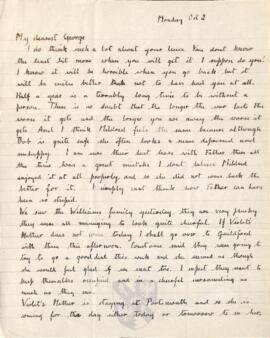 Monday Oct 2
My dearest George
I do think such a lot about your leave. You don't know
the least bit more when you will get it I suppose do you?
I know it will be horrible when you go back, but it
will be miles better than not to have had you at all.
Half a year is a terribly long time to be without a
person. There is no doubt that the longer the war lasts the
worse it gets and the longer you are away the worse it
gets. And I think Mildred feels the same because although
Bob is quite safe she often looks so depressed and
unhappy. I am sure their last leave with Father there all
the time was a great mistake. I don't believe Mildred
enjoyed it at all properly, and so she did not come back the
better for it. I simply can't think how Father can have
been so stupid.
We saw the Williams family yesterday. They are very plucky
they were all managing to look quite cheerful. If Violet's
Mother does not come today I shall go over to Guildford
with them this afternoon. Constance said they were going to
try to go a good deal this week and she seemed as though
she would feel glad if we went too. I expect they want to
keep themselves occupied and in a cheerful surrounding as
much as they can.
Violet's Mother is staying at Portsmouth and so she is
coming for the day either today or tomorrow to see her.